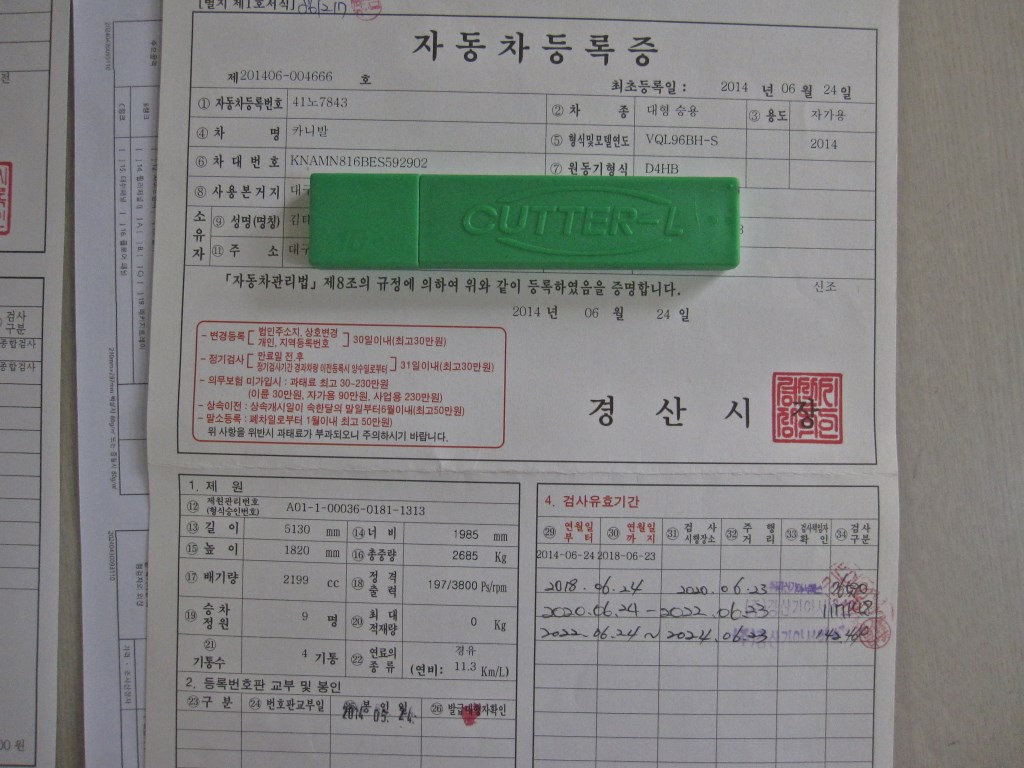 [별지 제1호서식]
자동차등록증
제201406-004666 호
최초등록일 : 2014 년 06 월 24 일
① 자동차등록번호 41노7843 ② 차 종 대형 승용 ③ 용도 자가용
④ 차 명 카니발 ⑤ 형식및모델연도 VQL96BH-S 2014
⑥ 차대번호 KNAMN816BES592902 ⑦ 원동기형식 D4HB
⑧ 사용본거지 대구
소유자 ⑨ 성명(명칭)
⑪ 주 소 대구
CUTTER-L
「자동차관리법」 제8조의 규정에 의하여 위와 같이 등록하였음을 증명합니다. 신조
2014 년 06 월 24 일
- 변경등록 [ 법인주소지, 상호변경 개인, 지역등록번호 ] 30일이내(최고30만원)
- 정기검사 [ 만료일 전,후 정기검사기간 경과차량 이전등록시 양수일로부터 ] 31일이내(최고30만원)
- 의무보험 미가입시 : 과태료 최고 30~230만원
(이륜 30만원, 자가용 90만원, 사업용 230만원)
- 상속이전 : 상속개시일이 속한달의 말일부터6월이내(최고50만원)
- 말소등록 : 폐차일로부터 1월이내 최고 50만원)
위 사항을 위반시 과태료가 부과되오니 주의하시기 바랍니다.
경 산 시 장
1. 제 원
⑫ 제원관리번호 (형식승인번호) A01-1-00036-0181-1313
⑬ 길 이 5130 mm ⑭ 너 비 1985 mm
⑮ 높 이 1820 mm ⑯ 총중량 2685 Kg
⑰ 배기량 2199 cc ⑱ 정격출력 197/3800 Ps/rpm
⑲ 승차정원 9 명 ⑳ 최대적재량 0 Kg
㉑ 기통수 4 기통 ㉒ 연료의종류 경유 (연비: 11.3 Km/L)
2. 등록번호판 교부 및 봉인
㉓ 구 분 ㉔ 번호판교부일 봉인일 ㉖ 발급대행자확인
4. 검사유효기간
㉙ 연월일부터 ㉚ 연월일까지 ㉛ 검사시행장소 ㉜ 주행거리 ㉝ 검사책임자확인 ㉞ 검사구분
2014-06-24 2018-06-23
2018.06.24 2020.06.23
2020.06.24 - 2022.06.23
2022.06.24 ~ 2024.06.23
검사
구분
종합검사
종합검사